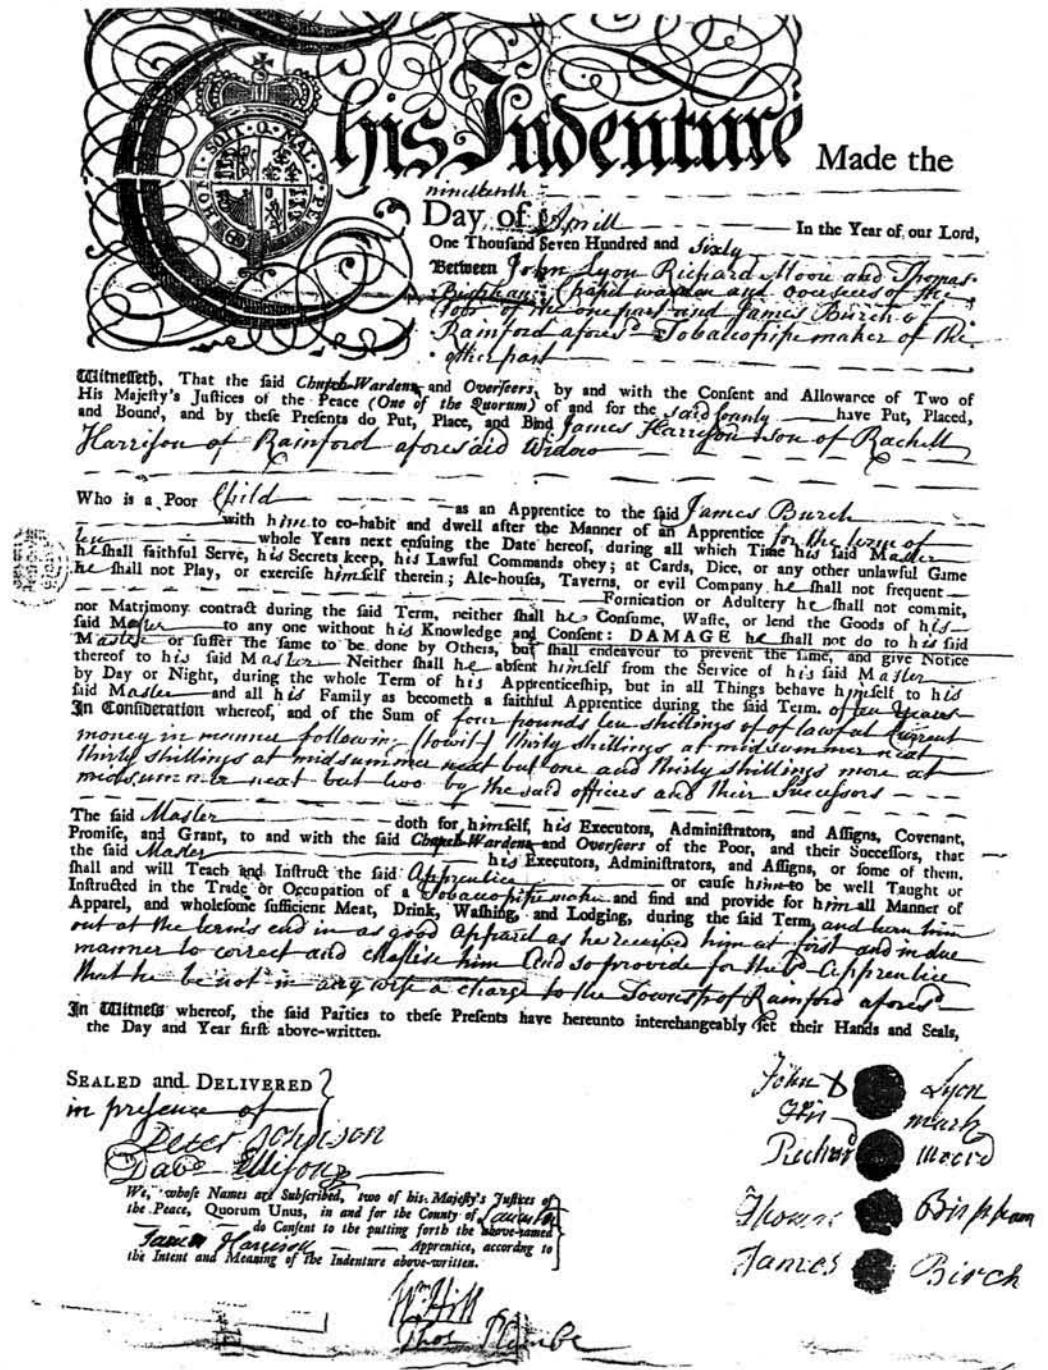 This Indenture Made the
HONI · SOIT · Q · MAL · Y · PE
nineteenth
Day of Aprill In the Year of our Lord,
One Thousand Seven Hundred and Sixty
Between John Lyon Richard Moon and Thomas
Bispham Chapel warden and overseers of the
Poor of the one part and James Burch of
Rainford aforesd Tobaccopipemaker of the
other part
Witnesseth, That the said Chapel-Wardens and Overseers, by and with the Consent and Allowance of Two of
His Majesty's Justices of the Peace (One of the Quorum) of and for the said County have Put, Placed,
and Bound, and by these Presents do Put, Place, and Bind James Harrison son of Rachell
Harrison of Rainford aforesaid Widow
Who is a Poor Child as an Apprentice to the said James Burch
with him to co-habit and dwell after the Manner of an Apprentice for the term of
ten whole Years next ensuing the Date hereof, during all which Time his said Master
he shall faithful Serve, his Secrets keep, his Lawful Commands obey; at Cards, Dice, or any other unlawful Game
he shall not Play, or exercise himself therein; Ale-houses, Taverns, or evil Company he shall not frequent
Fornication or Adultery he shall not commit,
nor Matrimony contract during the said Term, neither shall he Consume, Waste, or lend the Goods of his
said Master to any one without his Knowledge and Consent: DAMAGE he shall not do to his said
Master or suffer the same to be done by Others, but shall endeavour to prevent the same, and give Notice
thereof to his said Master Neither shall he absent himself from the Service of his said Master
by Day or Night, during the whole Term of his Apprenticeship, but in all Things behave himself to his
said Master and all his Family as becometh a faithful Apprentice during the said Term. of ten Years
In Consideration whereof, and of the Sum of four pounds ten shillings of lawful Current
money in manner following (towit) thirty shillings at midsummer next
thirty shillings at midsummer next but one and thirty shillings more at
midsummer next but two by the said officers and their Successors
The said Master doth for himself, his Executors, Administrators, and Assigns, Covenant,
Promise, and Grant, to and with the said Chapel-Wardens and Overseers of the Poor, and their Successors, that
the said Master his Executors, Administrators, and Assigns, or some of them,
shall and will Teach and Instruct the said Apprentice or cause him to be well Taught or
Instructed in the Trade or Occupation of a Tobaccopipemaker and find and provide for him all Manner of
Apparel, and wholesome sufficient Meat, Drink, Washing, and Lodging, during the said Term, and turn him
out at the term's end in as good Apparel as he received him at first and in due
manner to correct and Chastise him And so provide for the sd Apprentice
that he be not in any wise a charge to the Townsp of Rainford aforesd
In Witness whereof, the said Parties to these Presents have hereunto interchangeably set their Hands and Seals,
the Day and Year first above-written.
SEALED and DELIVERED
in presence of
Peter Johnson
Davd Ellison
John Lyon
His mark
Richard Moord
Thomas Bispham
James Birch
We, whose Names are Subscribed, two of his Majesty's Justices of
the Peace, Quorum Unus, in and for the County of Lancaster
do Consent to the putting forth the above-named
James Harrison Apprentice, according to
the Intent and Meaning of the Indenture above-written.
Wm Hill
Thos Plumbe